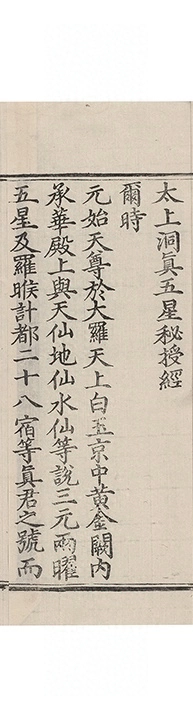 太上洞眞五星秘授經
爾時
元始天尊於大羅天上白玉京中黃金闕內
承華殿上與天仙地仙水仙等說三元兩曜
五星及羅睺計都二十八宿等眞君之號而